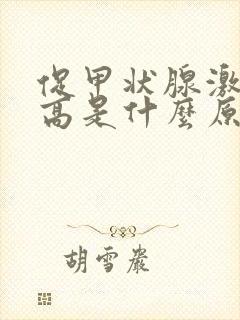 促甲状腺激
高是什麼原
胡雪巖